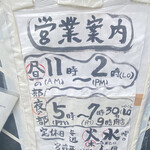 営業案内
昼の部 11時~2時(LO)
(AM) (PM)
夜の部 5時~7時30(LO)
(PM) 9時
定休日 毎週 火 水